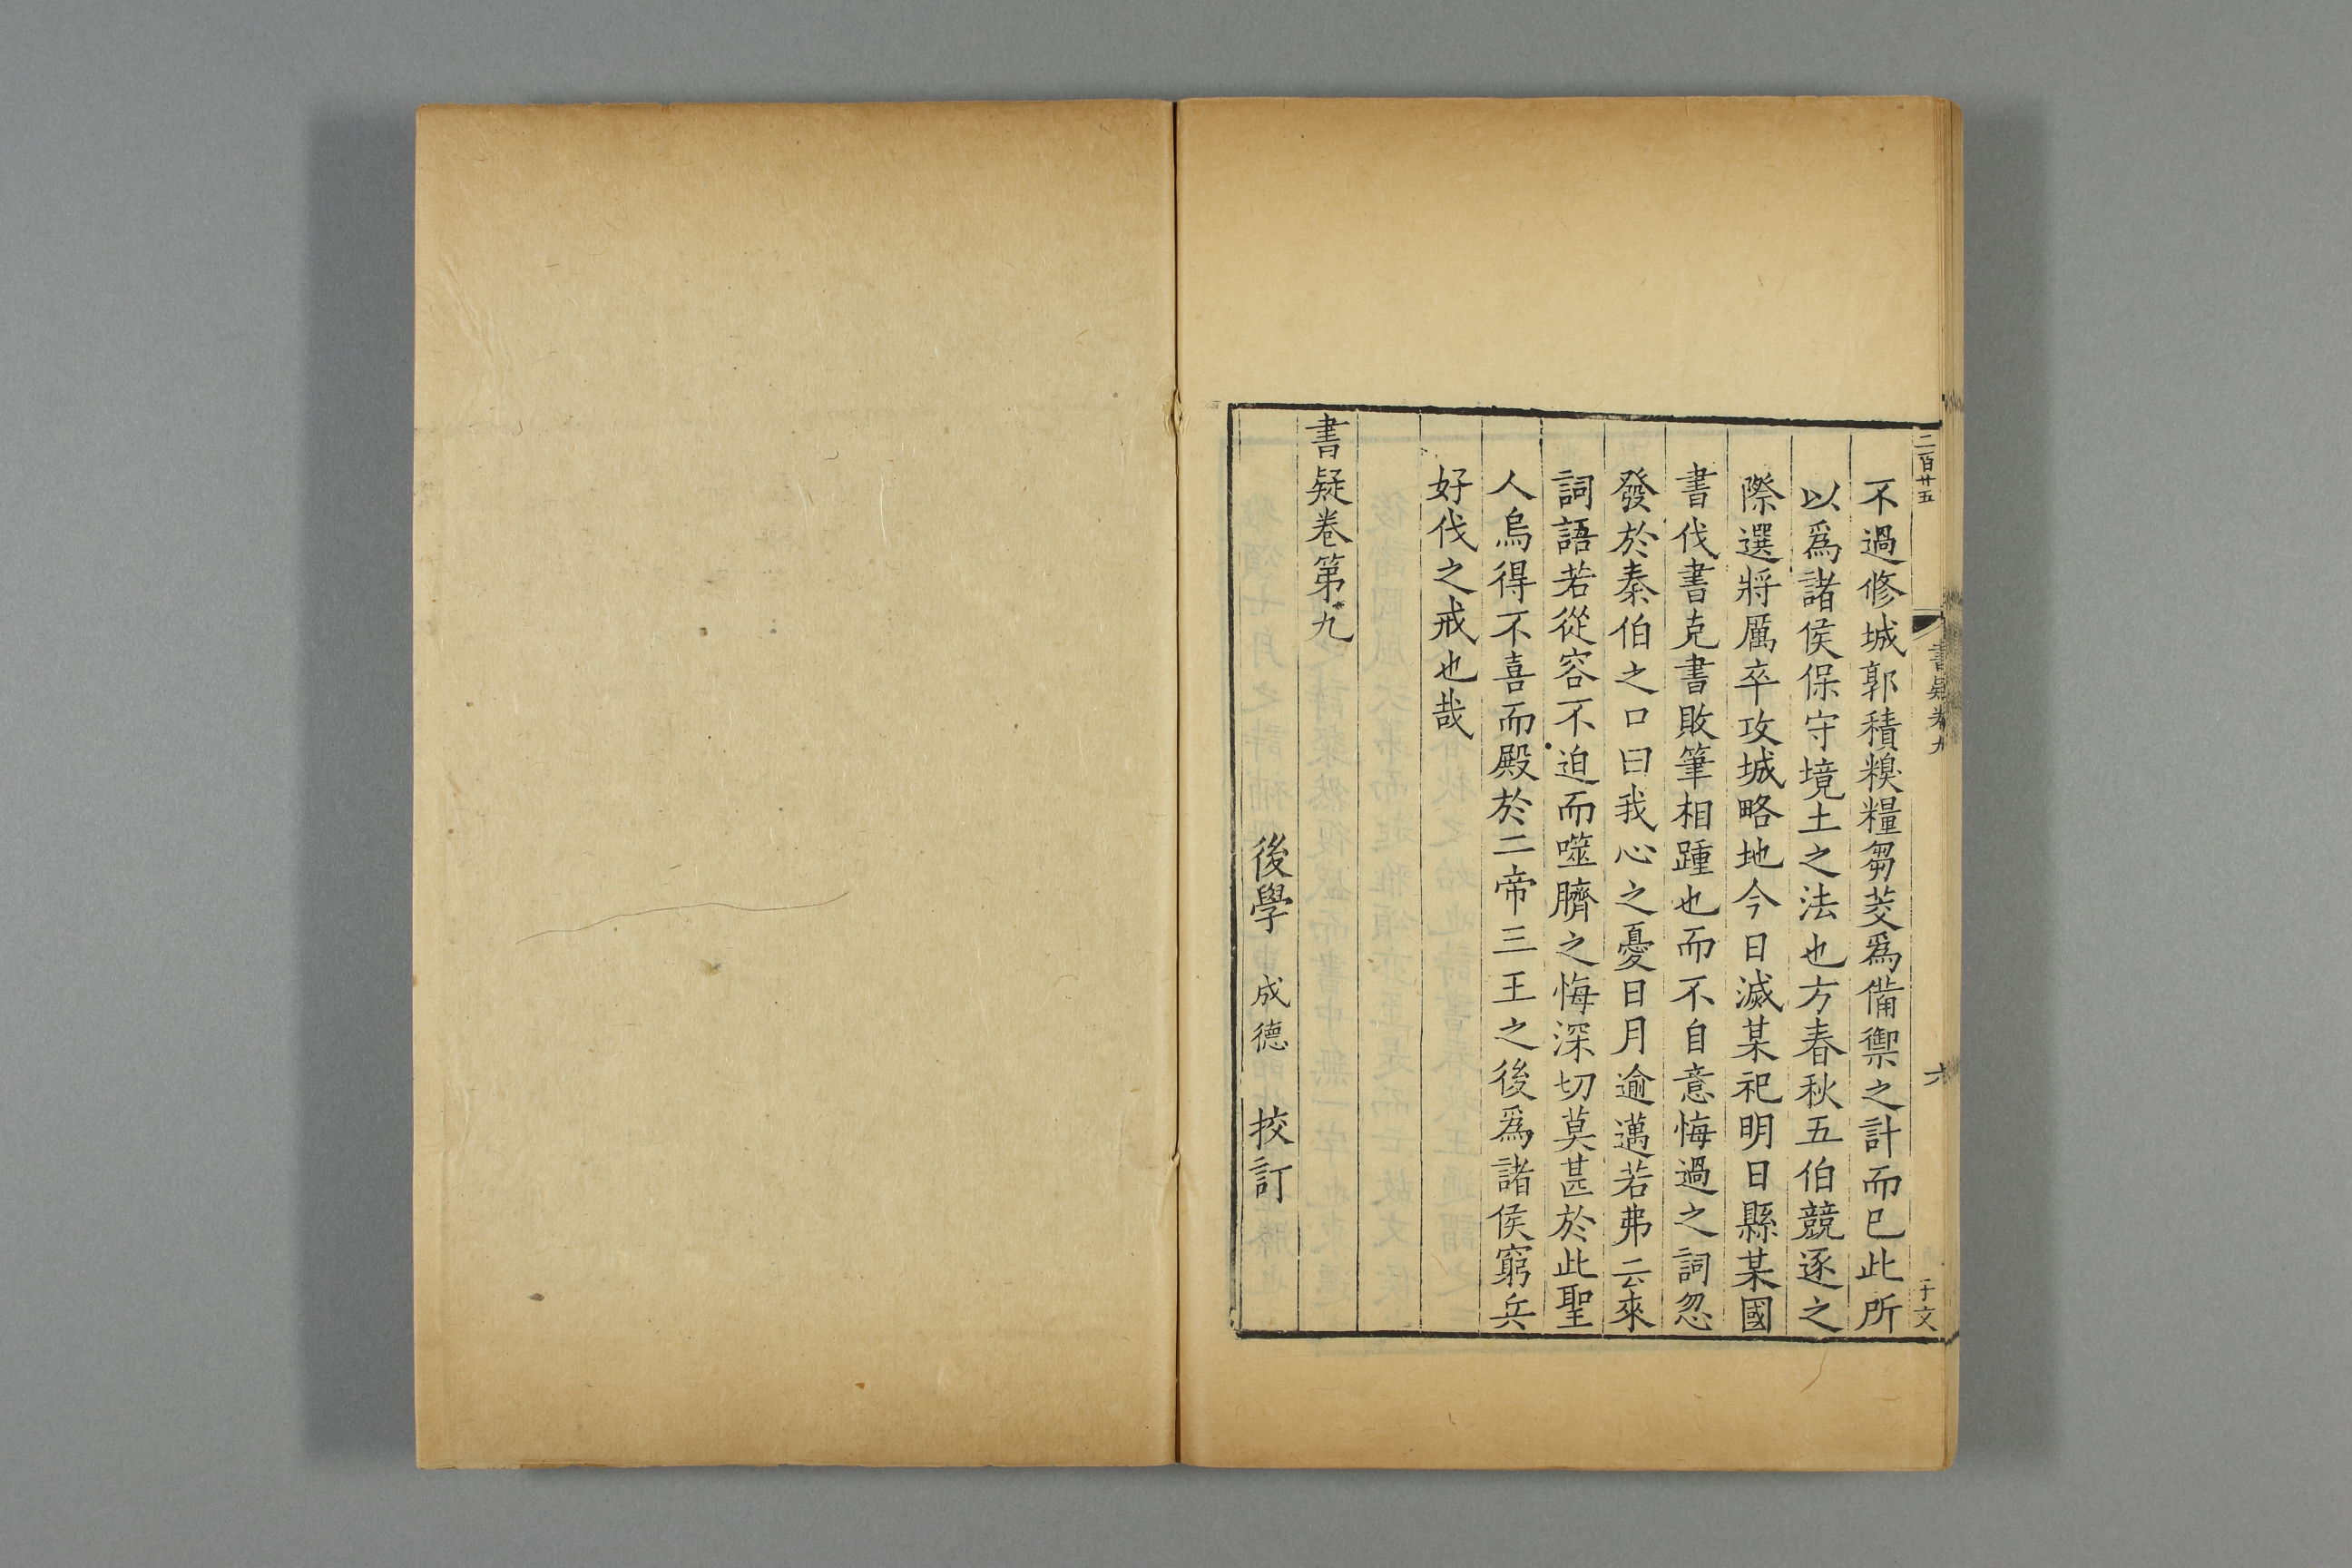 二百廿五
書疑卷九
六
于文
不過修城郭積糗糧芻茭爲備禦之計而已此所
以爲諸侯保守境土之法也方春秋五伯競逐之
際選將厲卒攻城略地今日滅某祀明日縣某國
書伐書克書敗筆相踵也而不自意悔過之詞忽
發於秦伯之口曰我心之憂日月逾邁若弗云來
詞語若從容不迫而噬臍之悔深切莫甚於此聖
人烏得不喜而殿於二帝三王之後爲諸侯窮兵
好伐之戒也哉
書疑卷第九
後學 成德 挍訂